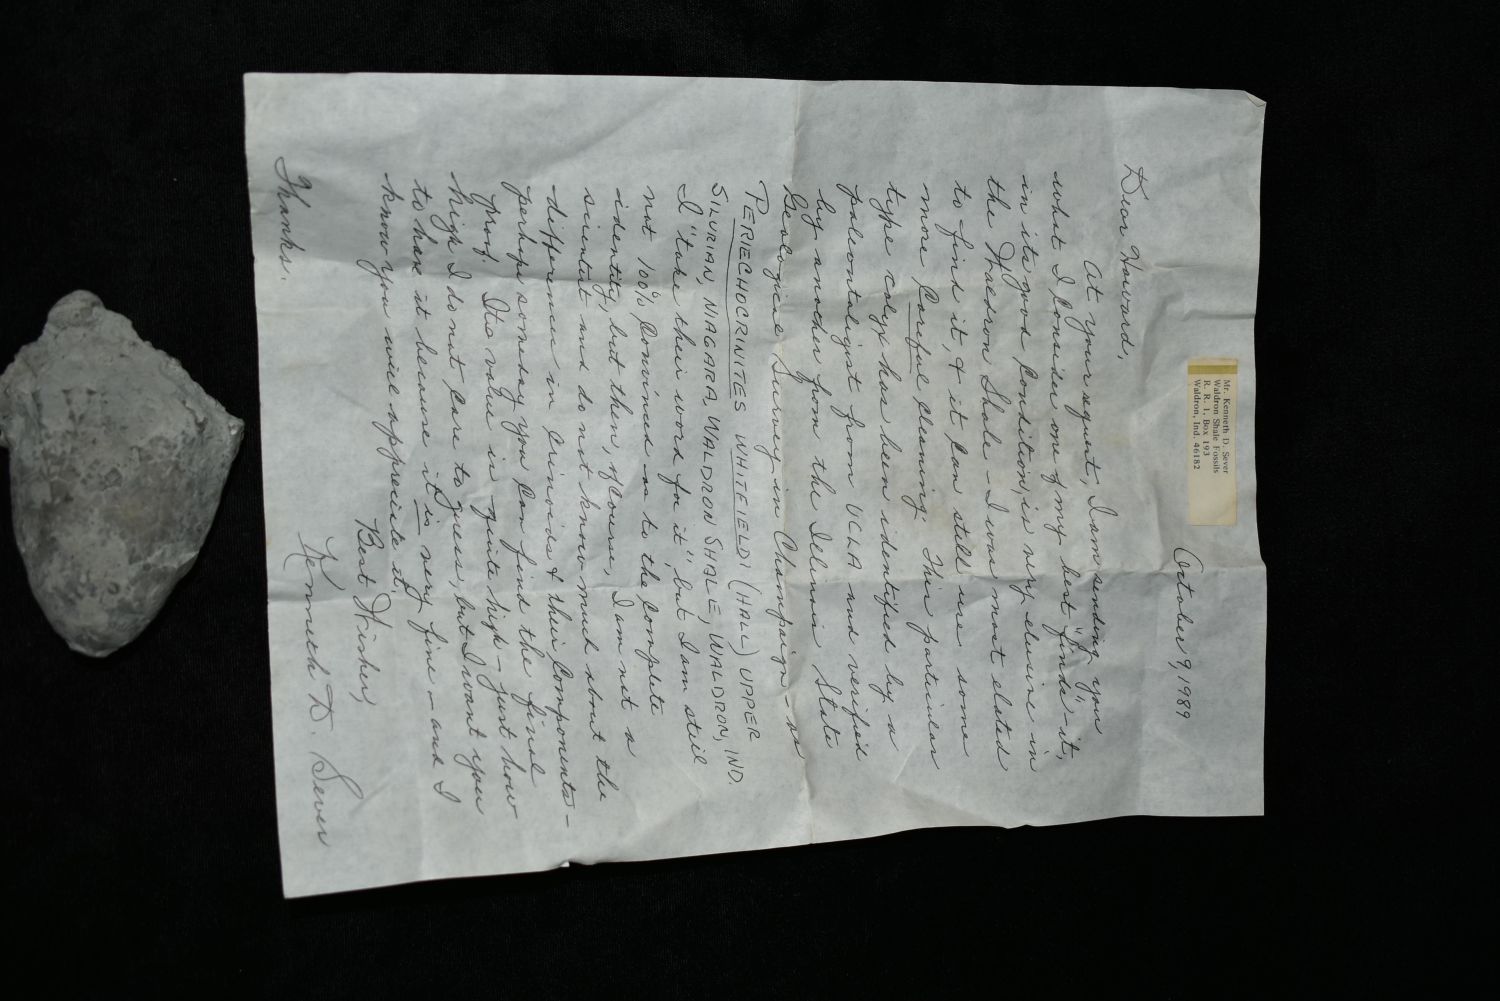 Mr. Kenneth D. Sever
Waldron Shale Fossils
R. R. 1, Box 193
Waldron, Ind. 46182
October 9, 1989
Dear Howard,
At your request, I am sending you
what I consider one of my best "finds" - it,
in its good condition, is very elusive in
the Waldron Shale - I was most elated
to find it, & it can still use some
more careful cleaning. This particular
type calyx has been identified by a
paleontologist from UCLA and verified
by another from the Illinois State
Geological Survey in Champaign - as
PERIECHOCRINITES WHITFIELDI (HALL) UPPER
SILURIAN, NIAGARA, WALDRON SHALE, WALDRON, IND.
I "take their word for it", but I am still
not 100% convinced as to the complete
identity, but then, of course, I am not a
scientist and do not know much about the
differences in crinoids & their components -
perhaps someday you can find the final
proof. Its value is quite high - just how
high I do not care to guess, but I want you
to have it because it is very fine - and I
know you will appreciate it.
Best Wishes,
Thanks.
Kenneth D. Sever